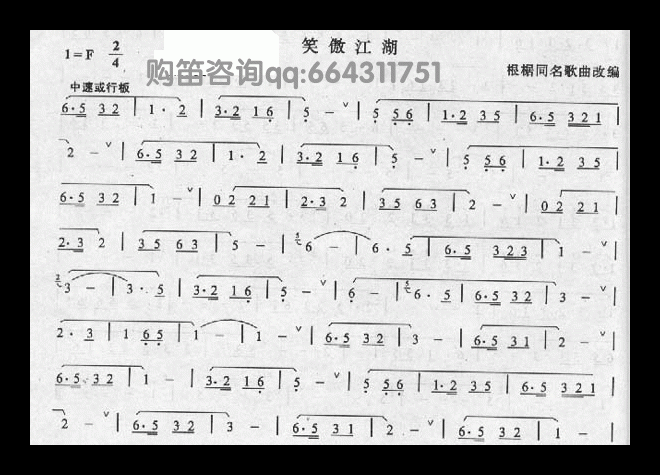 笑傲江湖
1=F 2/4
购笛咨询qq:664311751
根据同名歌曲改编
中速或行板
6·5 3 2 | 1 · 2 | 3·2 1 6 | 5 - ∨ | 5 5 6 | 1·2 3 5 | 6·5 3 2 1 |
2 - ∨ | 6·5 3 2 | 1 · 2 | 3·2 1 6 | 5 - ∨ | 5 5 6 | 1·2 3 5 |
6·5 3 2 | 1 - ∨ | 0 2 2 1 | 2·3 2 | 3 5 6 3 | 2 - ∨ | 0 2 2 1 |
2·3 2 | 3 5 6 3 | 5 - | 6 - | 6 · 5 | 6·5 3 2 3 | 1 - ∨ |
3 - | 3 · 5 | 3·2 1 6 | 5 - ∨ | 6 - | 6 · 5 | 6·5 3 2 | 3 - ∨ |
2 · 3 | 1 6 5 | 1 - | 1 - ∨ | 6·5 3 2 | 3 - | 6·5 3 2 | 2 - ∨ |
6·5 3 2 | 1 - | 3·2 1 6 | 5 - ∨ | 5 5 6 | 1·2 3 5 | 6·5 3 2 1 |
2 - ∨ | 6·5 3 2 | 3 - | 6·5 3 2 | 2 - ∨ | 6·5 3 2 | 1 - |